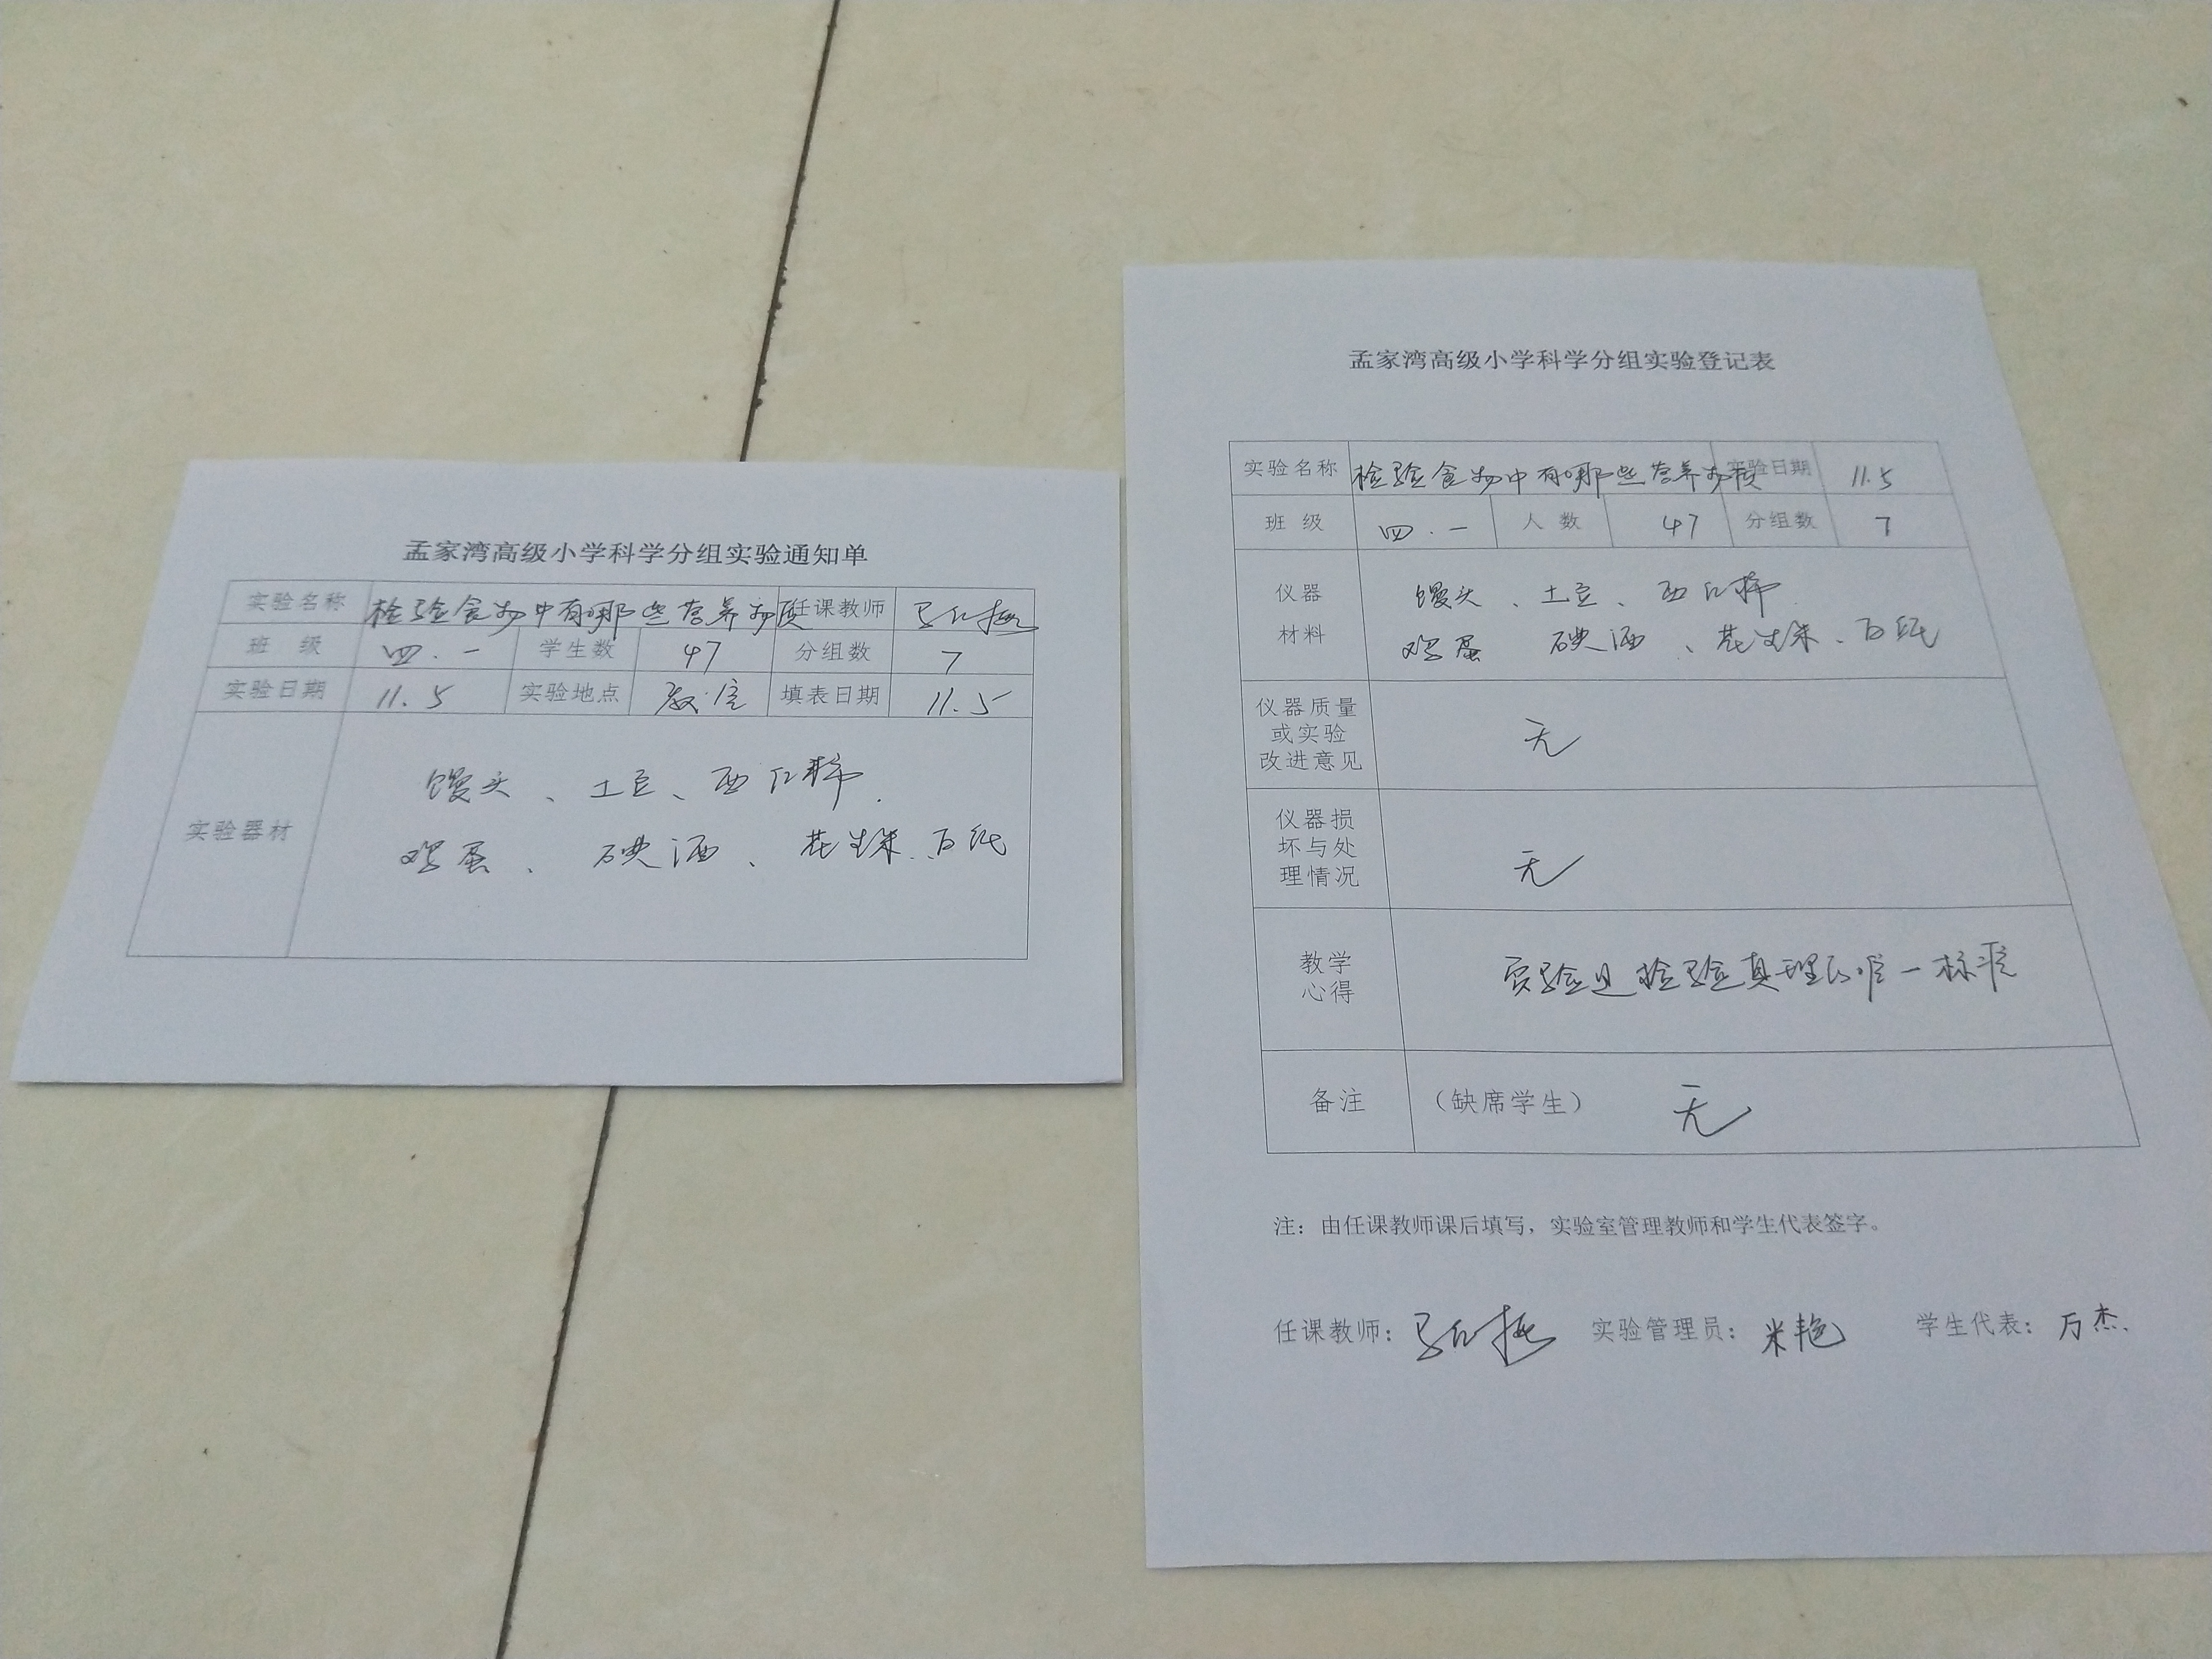 孟家湾高级小学科学分组实验通知单
实验名称 检验食物中有哪些营养物质 任课教师
班 级 四.一 学生数 47 分组数 7
实验日期 11.5 实验地点 教室 填表日期 11.5
实验器材
馒头、土豆、西红柿
鸡蛋、碘酒、花生米、白纸
孟家湾高级小学科学分组实验登记表
实验名称 检验食物中有哪些营养物质 实验日期 11.5
班 级 四.一 人 数 47 分组数 7
仪器 馒头、土豆、西红柿
材料 鸡蛋 碘酒、花生米、白纸
仪器质量
或实验 无
改进意见
仪器损
坏与处 无
理情况
教学 实验是检验真理的唯一标准
心得
备注 （缺席学生） 无
注：由任课教师课后填写，实验室管理教师和学生代表签字。
任课教师： 实验管理员：米艳 学生代表：万杰